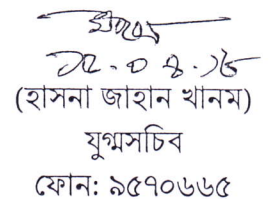 (হাসনা জাহান খানম)
যুগ্মসচিব
ফোন: ৯৫৭০৬৬৫